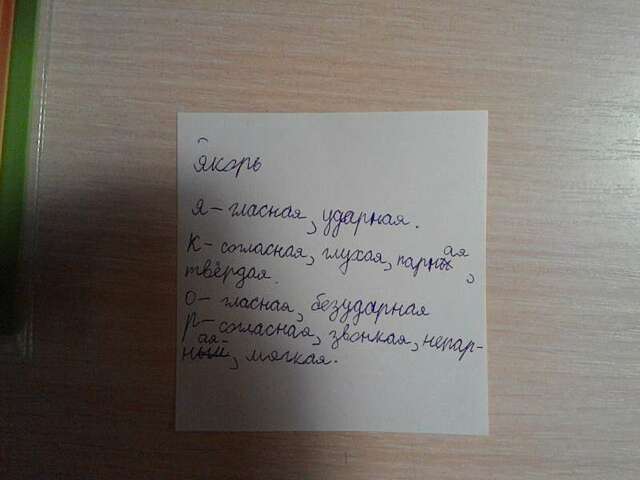 якорь
я – гласная, ударная.
к – согласная, глухая, парная,
твёрдая.
о – гласная, безударная
р – согласная, звонкая, непар-
ная, мягкая.